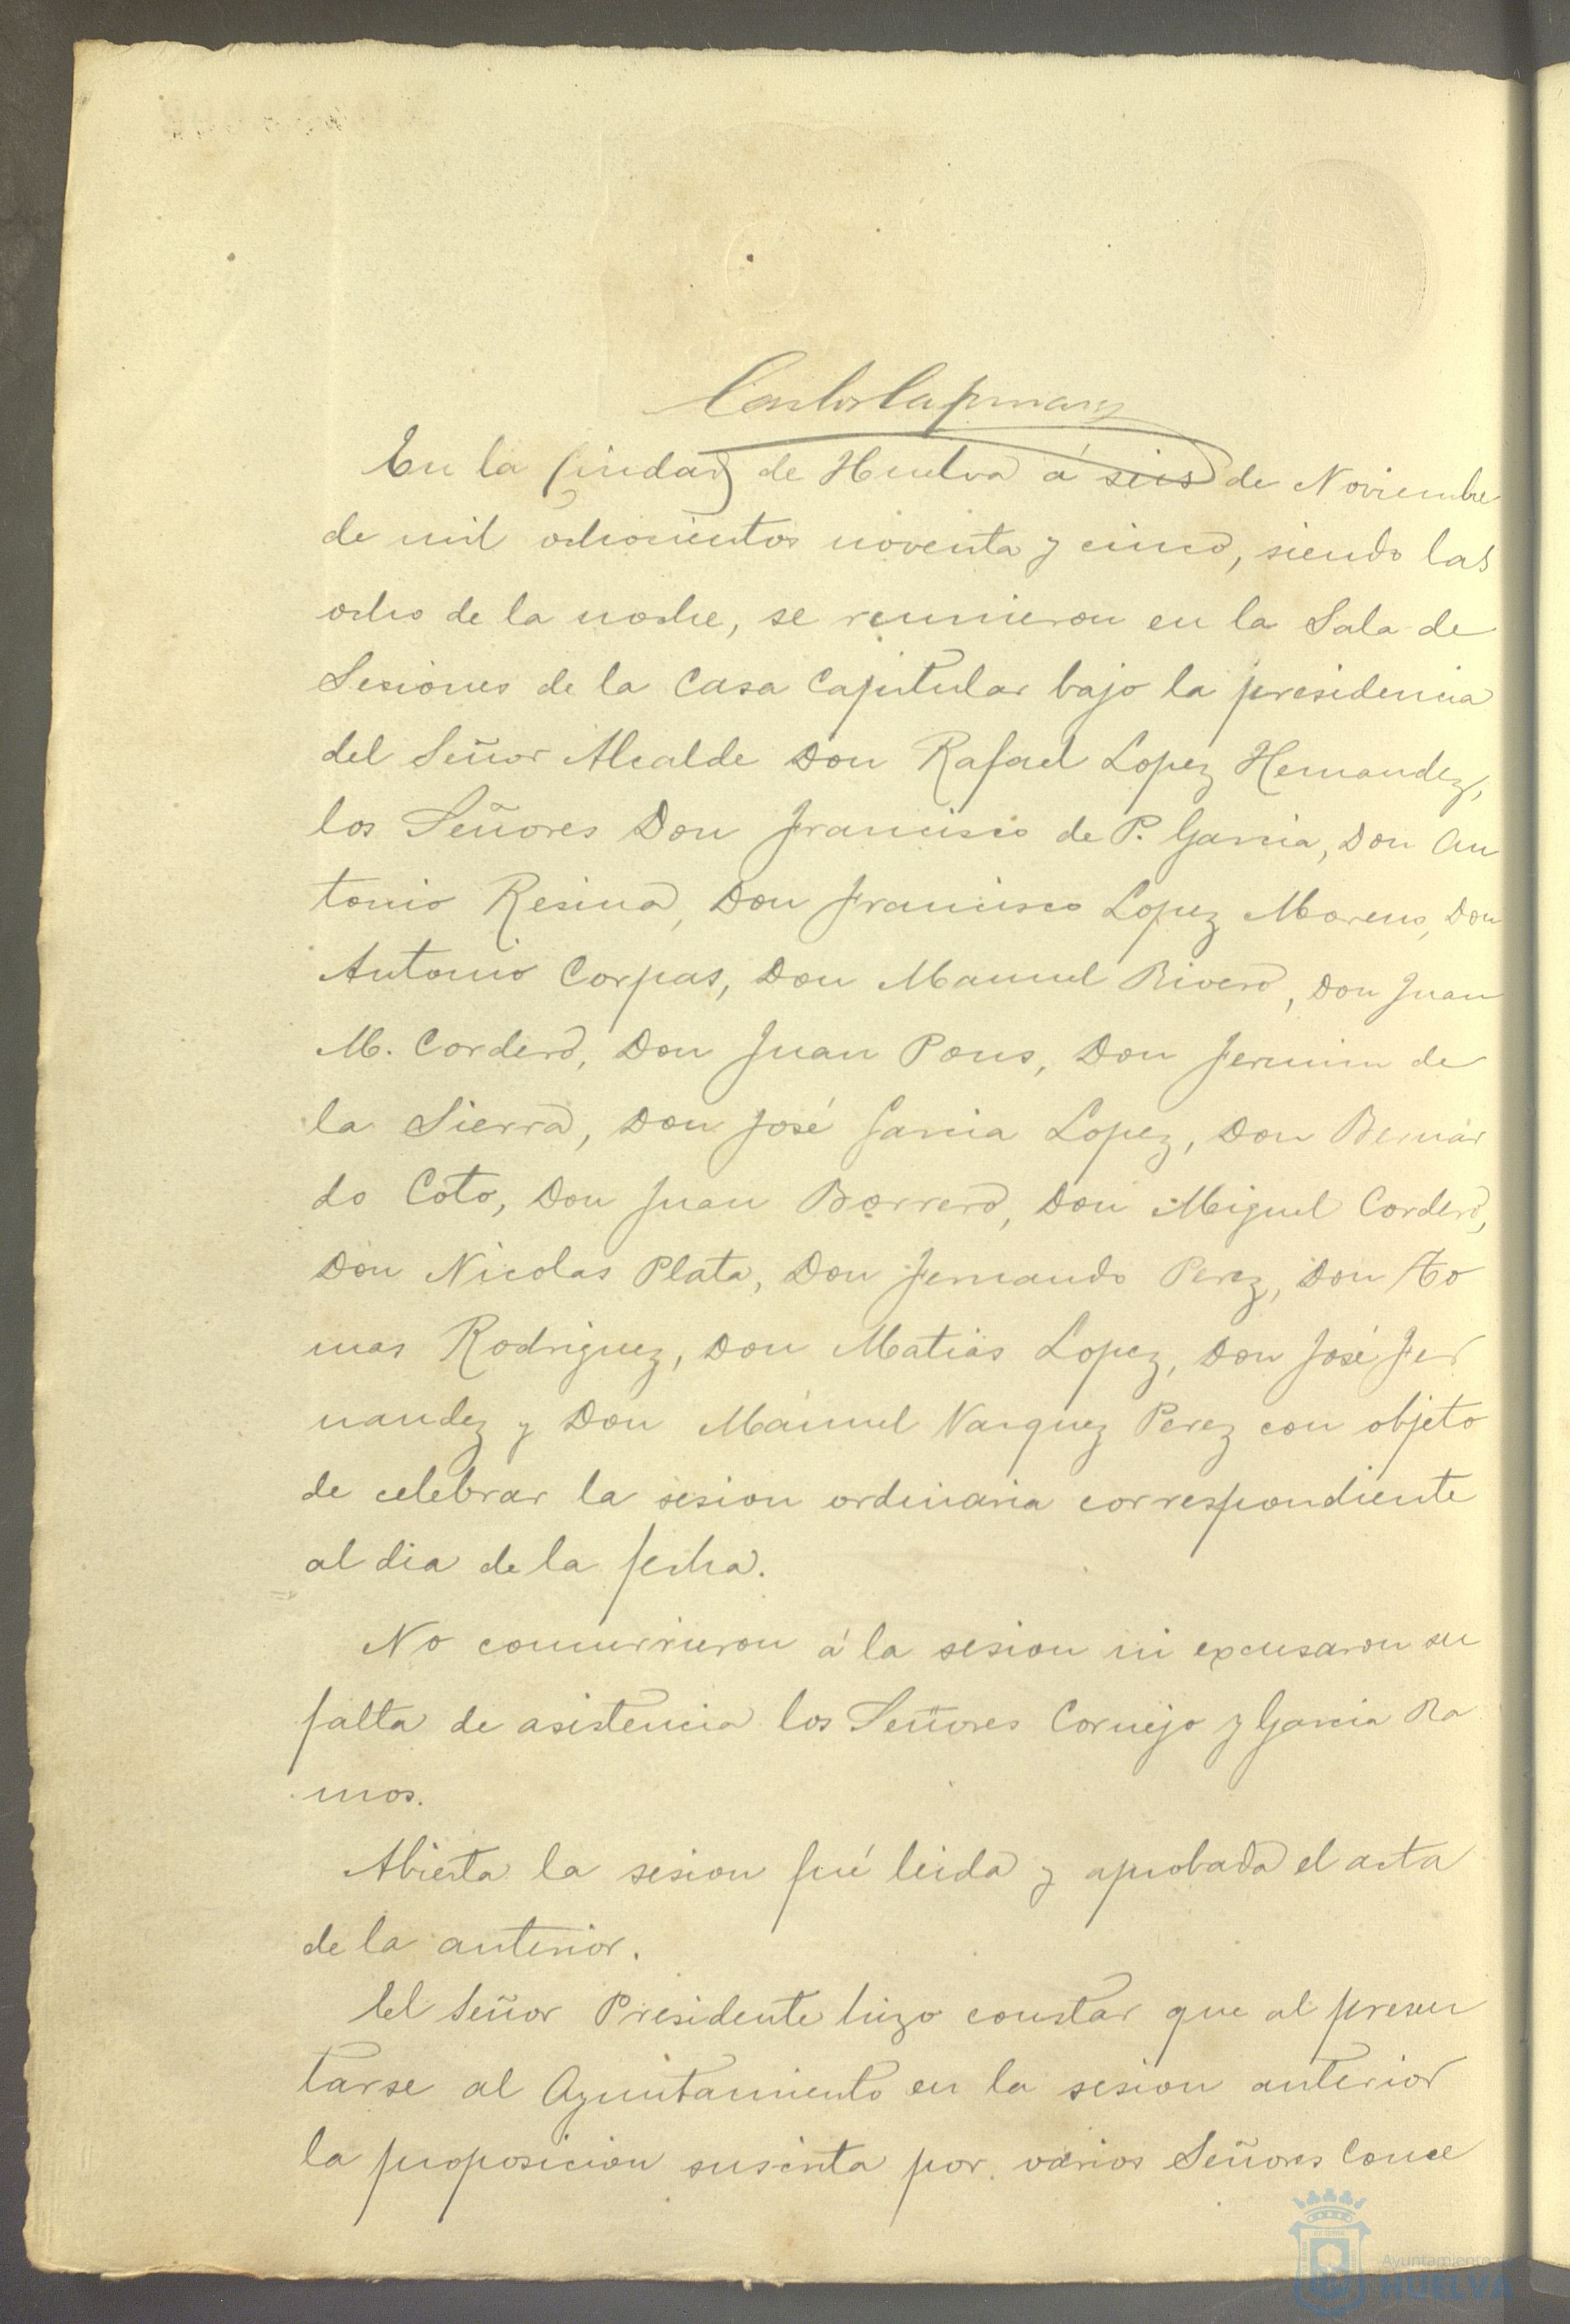 En la Ciudad de Huelva á seis de Noviembre
de mil ochocientos noventa y cinco, siendo las
ocho de la noche, se reunieron en la Sala de
Sesiones de la Casa Capitular bajo la presidencia
del Señor Alcalde Don Rafael Lopez Hernandez,
los Señores Don Francisco de P. Garcia, Don An
tonio Resina, Don Francisco Lopez Moreno, Don
Antonio Corpas, Don Manuel Rivero, Don Juan
M. Cordero, Don Juan Pons, Don Fermin de
la Sierra, Don José Garcia Lopez, Don Bernar
do Coto, Don Juan Borrero, Don Miguel Cordero,
Don Nicolas Plata, Don Fernando Perez, Don To
mas Rodriguez, Don Matias Lopez, Don José Fer
nandez y Don Manuel Vazquez Perez con objeto
de celebrar la sesion ordinaria correspondiente
al dia de la fecha.
No concurrieron á la sesion ni excusaron su
falta de asistencia los Señores Cornejo y Garcia Ra
mos.
Abierta la sesion fué leida y aprobada el acta
de la anterior.
El Señor Presidente hizo constar que al presen
tarse al Ayuntamiento en la sesion anterior
la proposicion suscrita por varios Señores Conce
Ayuntamiento
HUELVA